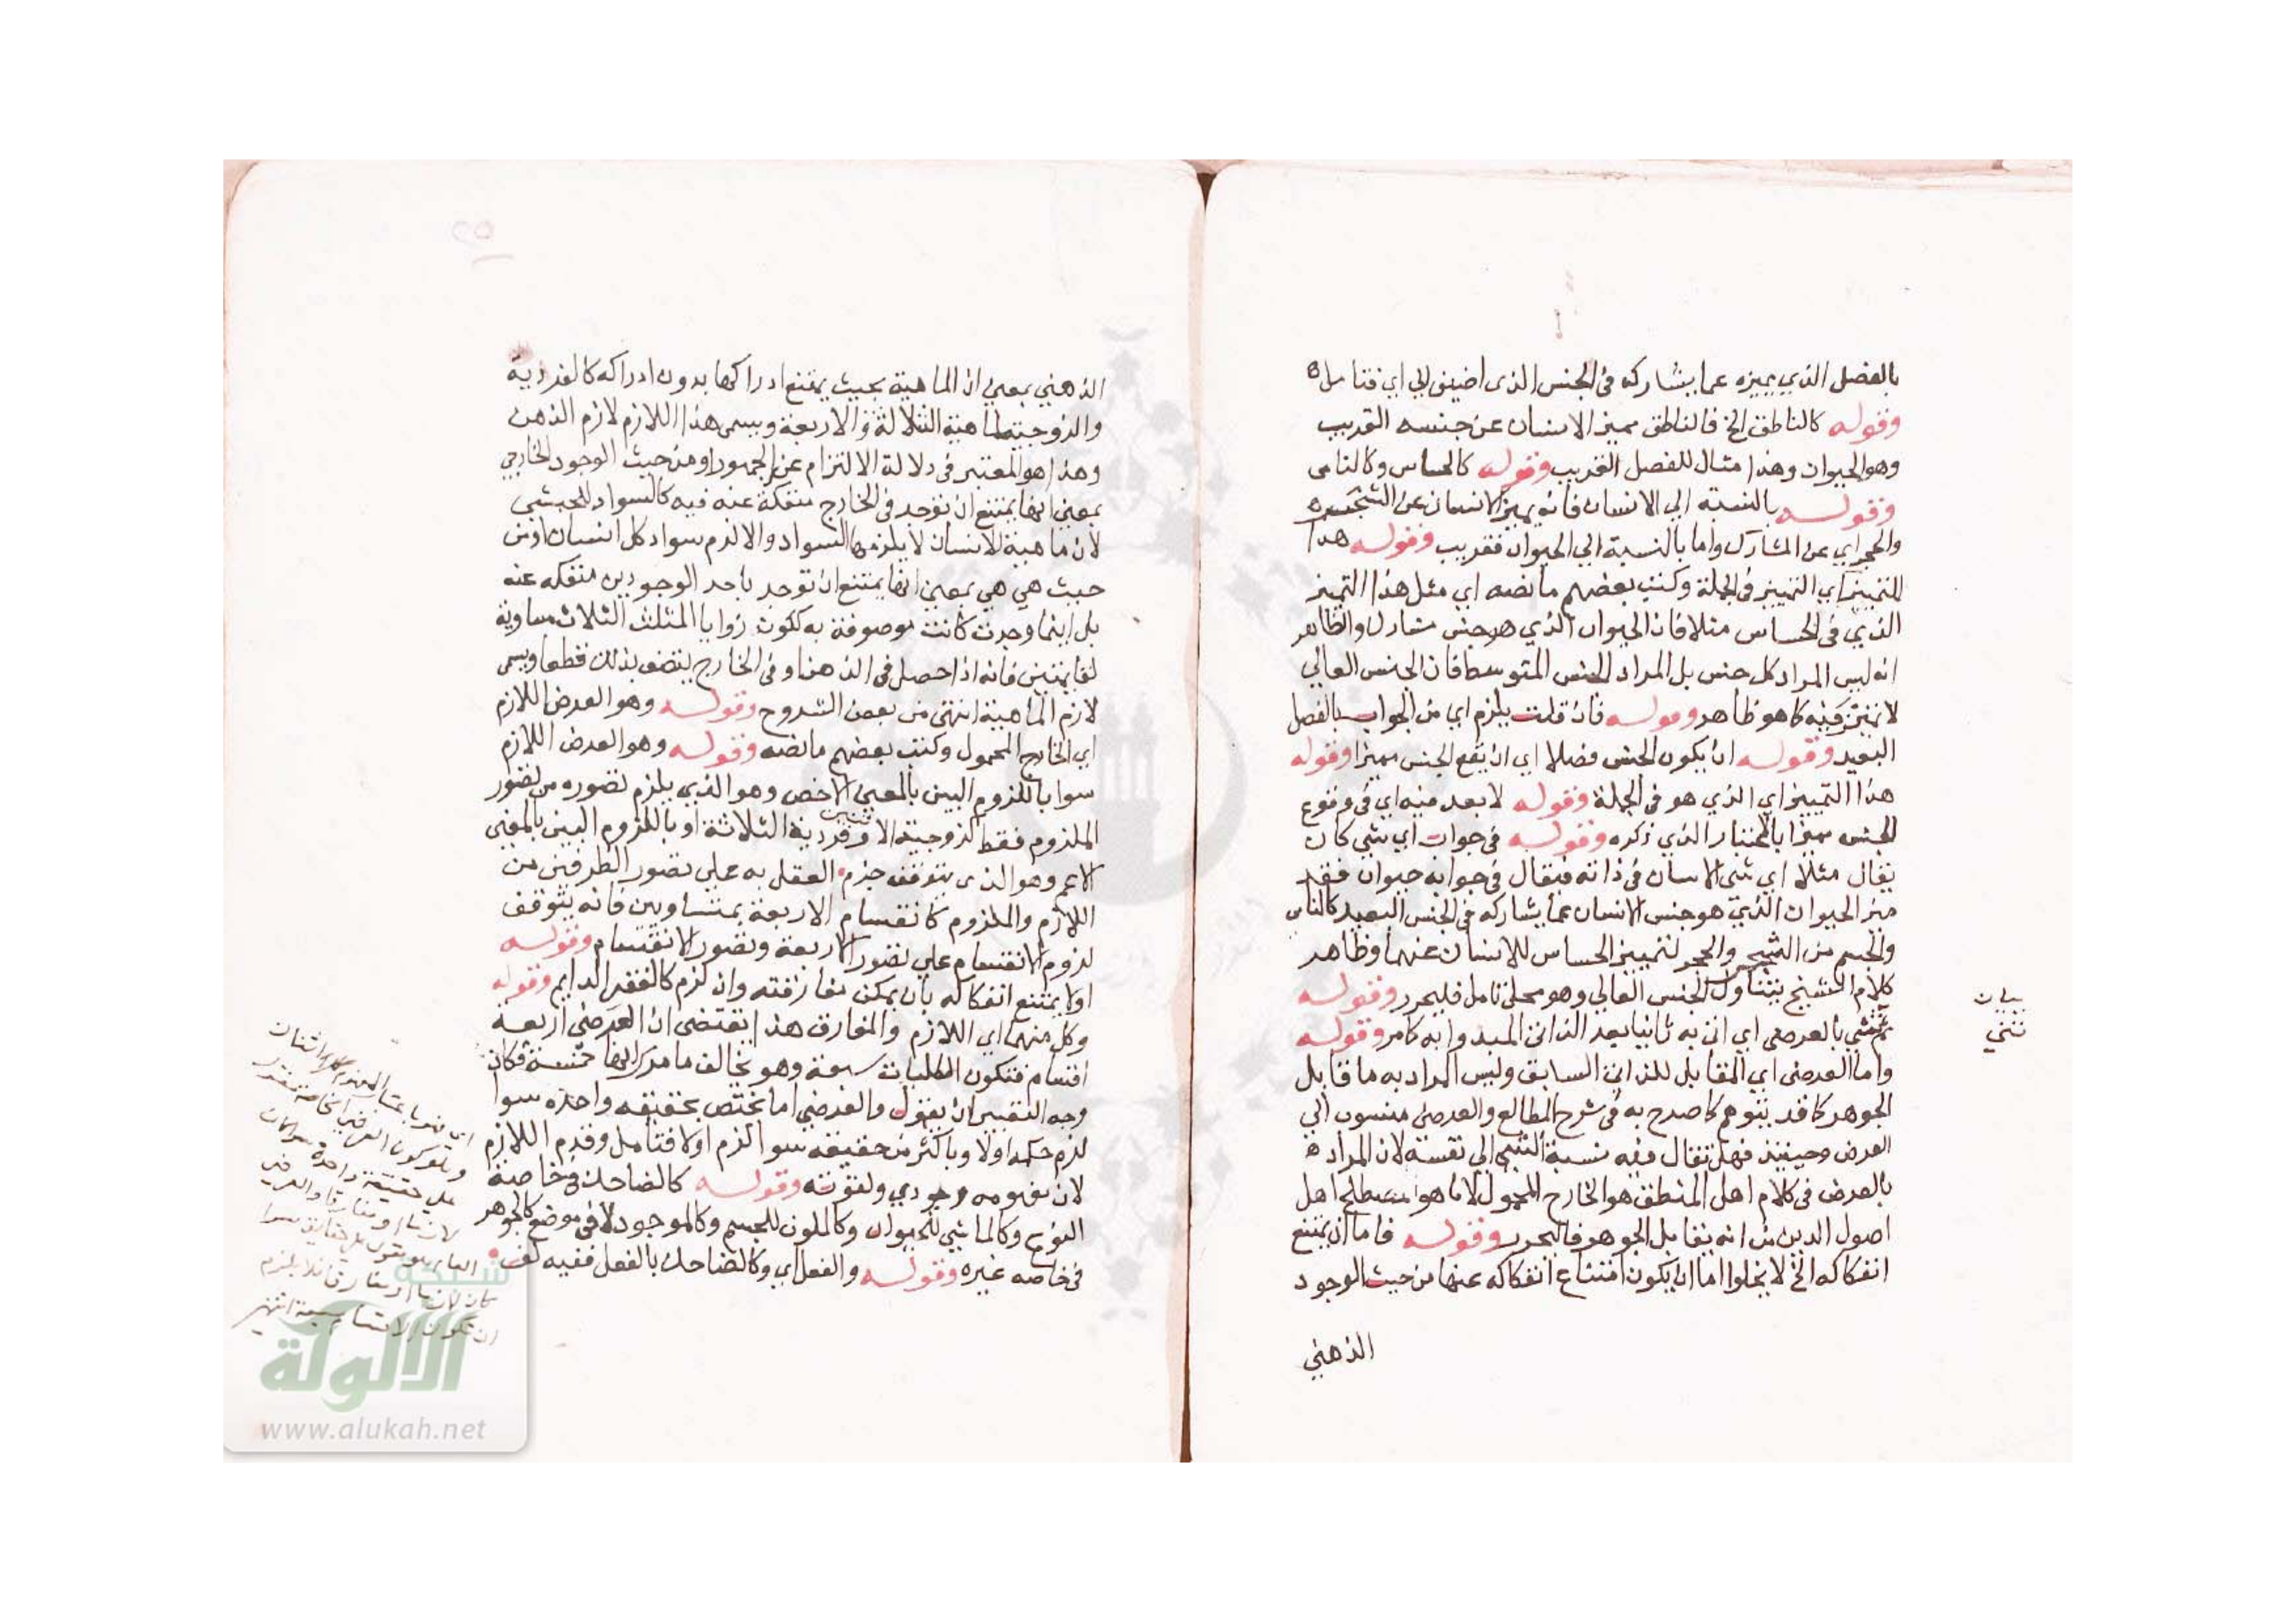 بالفصل الذي يميزه عما يشاركه في الجنس الذي اضيف الي اي فتامل ه
وقوله كالناطق الخ فالناطق مميز الانسان عن جنسه القريب
وهو الحيوان وهذا مثال للفصل القريب وقوله كالحساس وكالنامي
وقوله بالنسبة الي الانسان فانه يميز الانسان عن الشجر
والحجر اي عن المشارك واما بالنسبة الي الحيوان فقريب وقوله هذا
التمييز اي التمييز في الجملة وكتب بعضهم ما نصه اي مثل هذا التميز
الذي في الحساس مثلا فان الحيوان الذي هو جنس مشارك والظاهر
انه ليس المراد كل جنس بل المراد الجنس المتوسط فان الجنس العالي
لا تميز فيه كما هو ظاهر وقوله فان قلت يلزم اي من الجواب بالفصل
البعيد وقوله ان يكون الجنس فصلا اي ان يقع الجنس مميزا وقوله
هذا التمييز اي الذي هو في الجملة وقوله لا بعد فيه اي في وقوع
الجنس مميزا بالاعتبار الذي ذكره وقوله في جواب اي شي كان
يقال مثلا اي شي الانسان في ذاته فيقال في جوابه حيوان فقد
ميز الحيوان الذي هو جنس الانسان عما يشاركه في الجنس البعيد كالنامي
والجسم من الشجر والحجر لتمييز الحساس للانسان عنهما وظاهر
كلام الشيخ يتناول الجنس العالي وهو محل تامل فليحرر وقوله
ثم ثني بالعرضي اي اتي به ثانيا بعد الذاتي المبدو به كما مر وقوله
واما العرضي اي المقابل للذاتي السابق وليس المراد به ما قابل
الجوهر كما قد يتوهم كما صرح به في شرح المطالع والعرضي منسوب الي
العرض وحينئذ فهل يقال فيه نسبة الشي الي نفسه لان المراد ه
بالعرض في كلام اهل المنطق هو الخارج المحمول لا ما هو مصطلح اهل
اصول الدين من انه يقابل الجوهر فاليحرر وقوله فاما ان يمتنع
انفكاكه الخ لا يخلوا اما ان يكون امتناع انفكاكه عنها من حيث الوجود
الذهني
بيان
ثني
الذهني بمعني ان الماهية بحيث يمتنع ادراكها بدون ادراكه كالفردية
والزوجية لماهية الثلاثة والاربعة ويسمي هذا اللازم لازم الذهن
وهذا هو المعتبر في دلالة الالتزام عند الجمهور او من حيث الوجود الخارجي
بمعني انها يمتنع ان توجد في الخارج منفكة عنه فيه كالسواد للحبشي
لان ماهية الانسان لا يلزمها السواد والا لزم سواد كل انسان او من
حيث هي هي بمعني انها يمتنع ان توجد باحد الوجودين منفكه عنه
بل اينما وجدت كانت موصوفة به ككون زوايا المثلث الثلاث مساوية
لقايمتين فانه اذا حصل في الذهن او في الخارج يتصف بذلك قطعا ويسمي
لازم الماهية انتهي من بعض الشروح وقوله وهو العرض اللازم
اي الخارج المحمول وكتب بعضهم ما نصه وقوله وهو العرض اللازم
سوا باللزوم البين بالمعني الاخص وهو الذي يلزم تصوره من تصور
الملزوم فقط كزوجية الاثنين وفردية الثلاثة او باللزوم البين بالمعني
الاعم وهو الذي يتوقف جزم العقل به علي تصور الطرفين من
اللازم والملزوم كانقسام الاربعة بمتساويين فانه يتوقف
لزوم الانقسام علي تصور الاربعة وتصور الانقسام وقوله
او لا يمتنع انفكاكه بان يمكن مفارقته وان لزم كالفقر الدايم وقوله
وكل منهما اي اللازم والمفارق هذا يقتضي ان العرضي اربعة
اقسام فتكون الكليات سبعة وهو يخالف ما مر انها خمسة فكان
وجه التقييد ان يقول والعرضي اما يختص بحقيقه واحده سوا
لزم حكمه اولا وباكثر من حقيقه سوا لزم اولا فتامل وقدم اللازم
لان مفهومه وجودي ولقوته وقوله كالضاحك في خاصة
النوع وكالماشي للحيوان وكالملون للجسم وكالموجود لا في موضع كالجوهر
في خاصه غيره وقوله والفعل اي وكالضاحك بالفعل ففيه لف
العام هو يقول علي حقايق سوا
كان لازما او مفارقا فلا يلزم
ان تكون الاقسام سبعة انتهي
شبكة
الألوكة
www.alukah.net